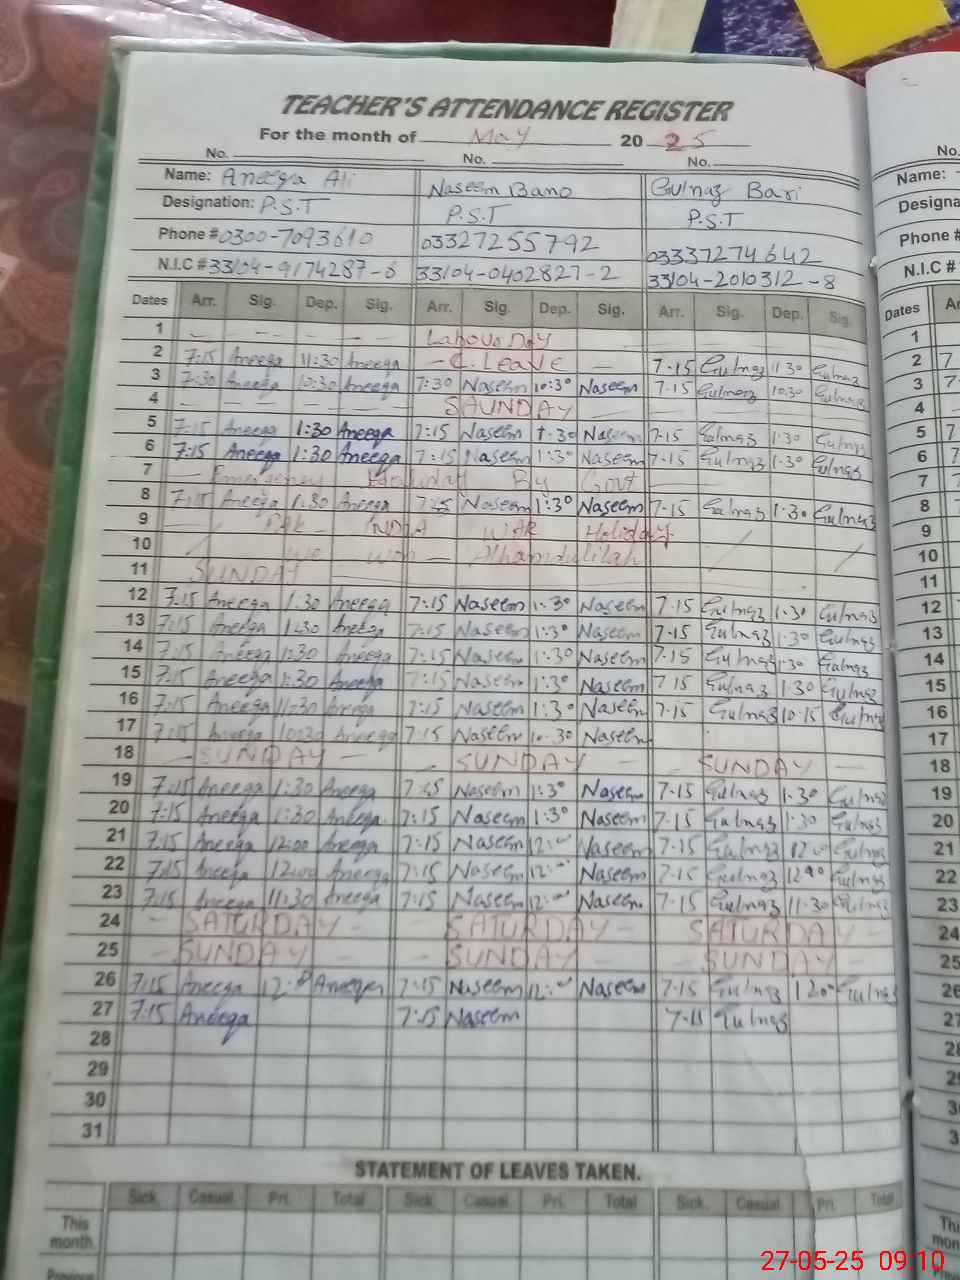 TEACHER'S ATTENDANCE REGISTER
For the month of May 20 25
No. No. No.
Name: Aneeqa Ali Naseem Bano Gulnaz Bari
Designation: P.S.T P.S.T P.S.T
Phone # 0300-7093610 03327255792 03337274642
N.I.C # 33104-9174287-6 33104-0402827-2 33104-2010312-8
Dates Arr. Sig. Dep. Sig. Arr. Sig. Dep. Sig. Arr. Sig. Dep. Sig.
1 Labour Day
2 7:15 Aneeqa 11:30 Aneeqa - C. Leave - 7-15 Gulnaz 11 30 Gulnaz
3 7:30 Aneeqa 10:30 Aneeqa 7:30 Naseem 10:30 Naseem 7-15 Gulnaz 10:30 Gulnaz
4 SAUNDAY
5 7:15 Aneeqa 1:30 Aneeqa 7:15 Naseem 1:30 Naseem 7-15 Gulnaz 1-30 Gulnaz
6 7:15 Aneeqa 1:30 Aneeqa 7:15 Naseem 1:30 Naseem 7-15 Gulnaz 1-30 Gulnaz
7 - Emergency Holiday By Govt
8 7:15 Aneeqa 1:30 Aneeqa Naseem 1:30 Naseem 7-15 Gulnaz 1-30 Gulnaz
9 PAK INDIA WAR Holiday
10 We won - Alhamdulilah
11 SUNDAY
12 7:15 Aneeqa 1:30 Aneeqa 7:15 Naseem 1:30 Naseem 7-15 Gulnaz 1-30 Gulnaz
13 7:15 Aneeqa 1:30 Aneeqa 7:15 Naseem 1:30 Naseem 7-15 Gulnaz 1-30 Gulnaz
14 7:15 Aneeqa 1:30 Aneeqa 7:15 Naseem 1:30 Naseem 7-15 Gulnaz 1-30 Gulnaz
15 7:15 Aneeqa 1:30 Aneeqa 7:15 Naseem 1:30 Naseem 7 15 Gulnaz 1-30 Gulnaz
16 7:15 Aneeqa 11:30 Aneeqa 7:15 Naseem 1:30 Naseem 7-15 Gulnaz 10-15 Gulnaz
17 7:15 Aneeqa 10:30 Aneeqa 7:15 Naseem 10-30 Naseem
18 - SUNDAY - - SUNDAY - - SUNDAY -
19 7:15 Aneeqa 1:30 Aneeqa 7:15 Naseem 1:30 Naseem 7-15 Gulnaz 1-30 Gulnaz
20 7:15 Aneeqa 1:30 Aneeqa 7:15 Naseem 1:30 Naseem 7-15 Gulnaz 1-30 Gulnaz
21 7:15 Aneeqa 12:00 Aneeqa 7:15 Naseem 12:00 Naseem 7-15 Gulnaz Gulnaz
22 7:15 Aneeqa 12:00 Aneeqa 7:15 Naseem 12:00 Naseem 7-15 Gulnaz Gulnaz
23 7:15 Aneeqa 11:30 Aneeqa 7:15 Naseem 12:00 Naseem 7-15 Gulnaz 11-30 Gulnaz
24 - SATURDAY - - SATURDAY - - SATURDAY -
25 - SUNDAY - - SUNDAY - - SUNDAY -
26 7:15 Aneeqa Aneeqa 7:15 Naseem 12:00 Naseem 7-15 Gulnaz Gulnaz
27 7:15 Aneeqa 7:15 Naseem 7-15 Gulnaz
28
29
30
31
STATEMENT OF LEAVES TAKEN.
Sick. Casual. Pri. Total Sick. Casual. Pri. Total Sick. Casual. Pri. Total
This
month.
Previous
No.
Name:
Phone #
N.I.C #
Dates
1
2 7
3 7
4
5 7
6 7
7
8 7
9
10
11
12
13
14
15
16
17
18
19
20
21
22
23
24
25
26
27
27-05-25 09:10